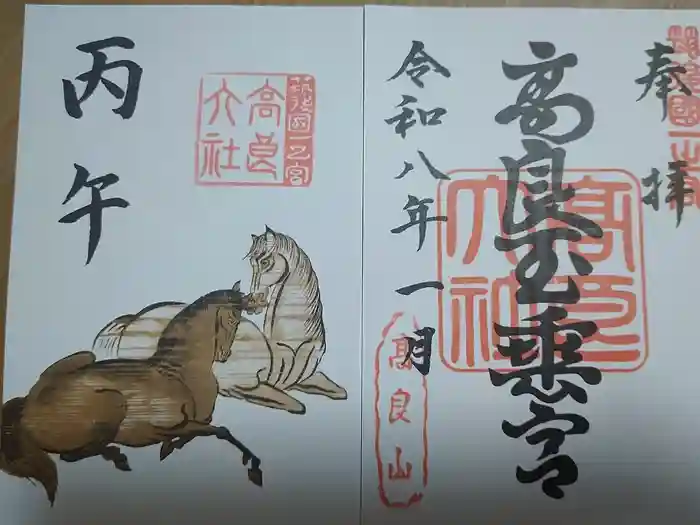 奉拝
高良玉垂宮
令和八年一月
高良大社
高良山
丙午
筑後国一之宮
高良大社